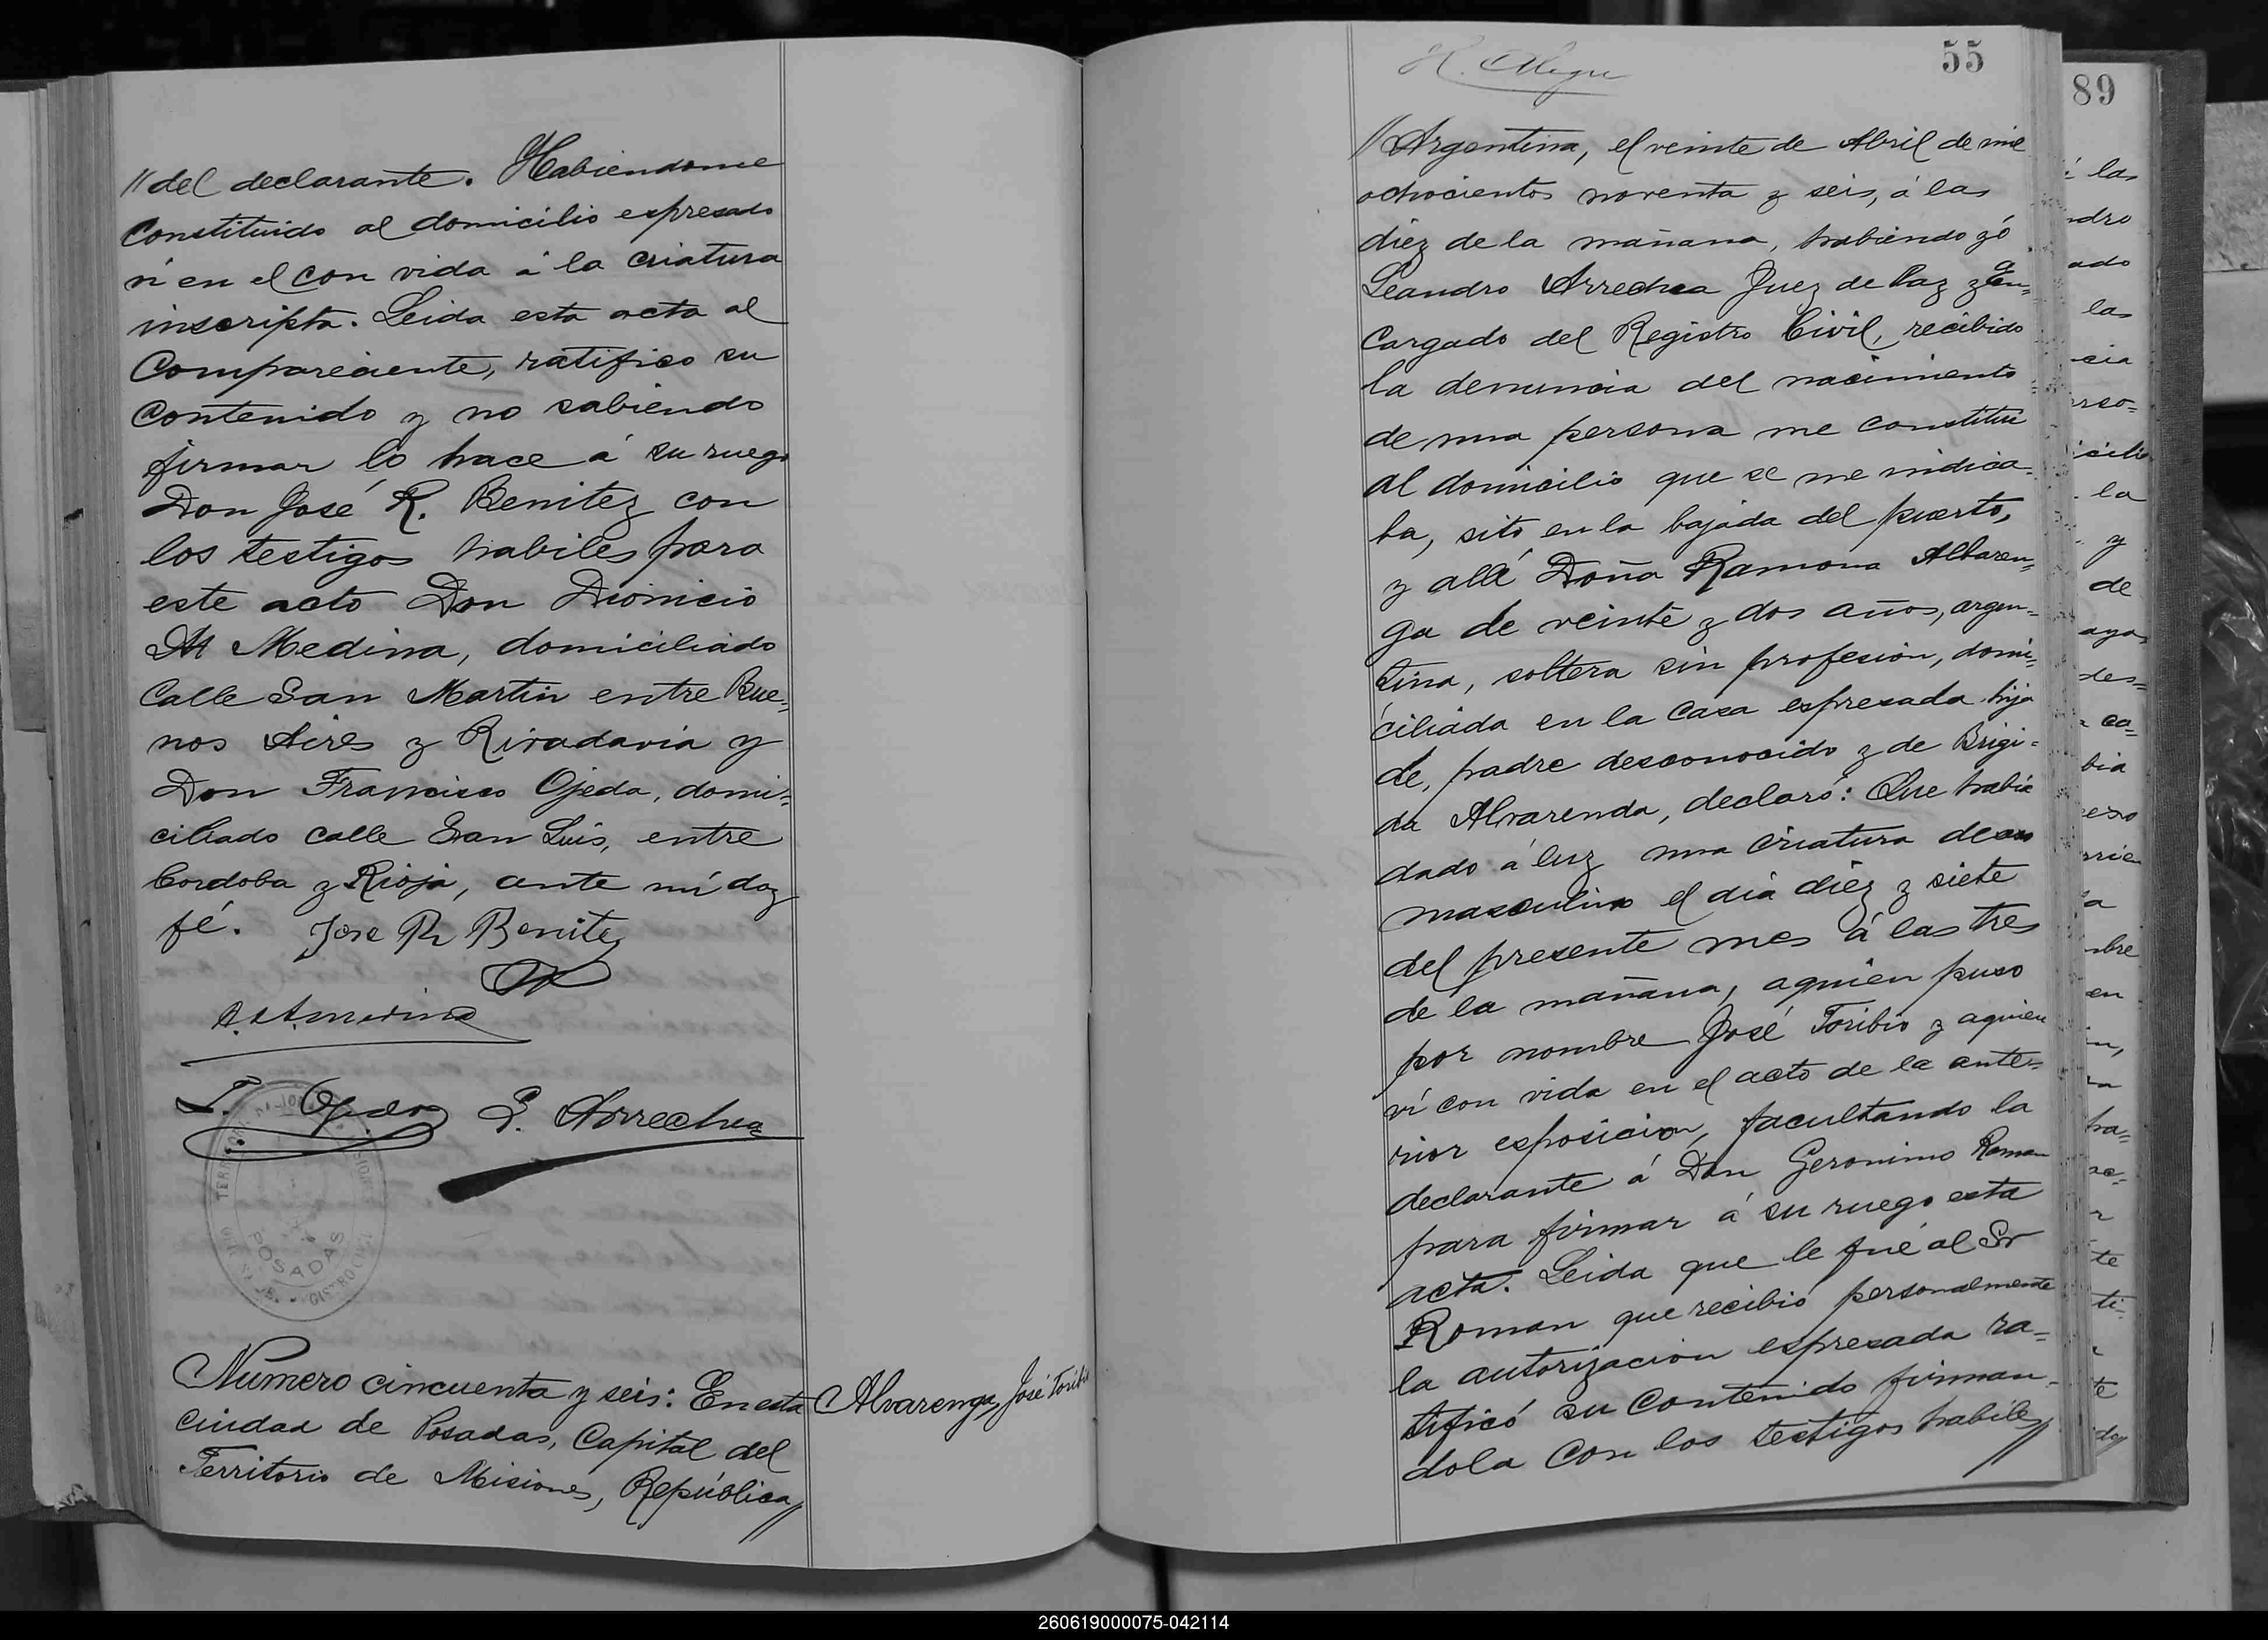 //del declarante. Habiendome
Constituido al domicilio espresado
ví en el con vida á la criatura
inscripta. Leida esta acta al
Compareciente, ratifico su
Contenido y no sabiendo
firmar lo hace á su ruego
Don José R. Benitez con
los testigos habiles para
este acto Don Dionicio
M Medina, domiciliado
Calle San Martin entre Bue=
nos Aires y Rivadavia y
Don Francisco Ojeda, domi=
ciliado calle San Luis, entre
Cordoba y Rioja, ante mí doy
fé. Jose R Benitez
F. Ojeda L. Arrechea
POSADAS
Numero cincuenta y seis: En esta
Ciudad de Posadas, Capital del
Territorio de Misiones, República//
Alvarenga, José Toribio
55
//Argentina, el veinte de Abril de mil
ochocientos noventa y seis, á las
diez de la mañana, habiendo yó
Leandro Arrechea Juez de Paz y En=
cargado del Registro Civil, recibido
la denuncia del nacimiento
de una persona me constituí
al domicilio que se me indica=
ba, sito en la bajada del puerto,
y allí Doña Ramona Albaren=
ga de veinte y dos años, argen=
tina, soltera sin profesion, domi=
ciliada en la Casa espresada hija
de, padre desconocido y de Brigi=
da Alvarenda, declaró: Que habia
dado á luz una Criatura de sexo
masculino el dia diez y siete
del presente mes á las tres
de la mañana, aquien puso
por nombre José Toribio y aquien
ví con vida en el acto de la ante=
rior esposicion, facultando la
declarante á Don Geronimo Roman
para firmar á su ruego esta
acta. Leida que le fué al Sr
Roman que recibió personalmente
la autorizacion espresada ra=
tificó su Contenido firman=
dola Con los testigos habiles//
89